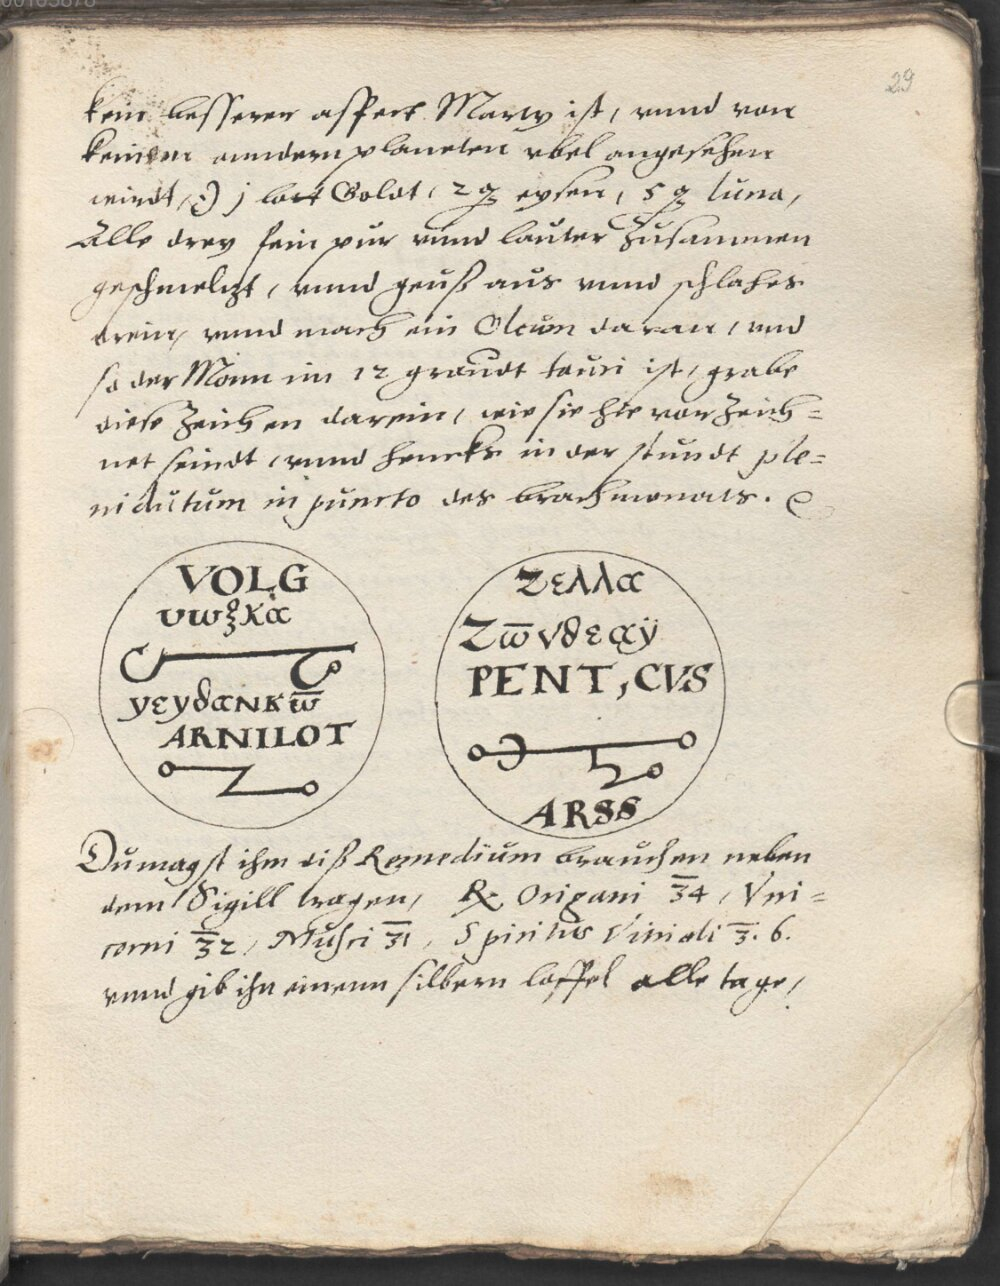 29
kein besserer aspect Martis ist, vnnd von
keinem anndern planeten vbel angesehen
wirdt, j lott Goldt, 2 q eysen, 5 q luna,
Alle drey fein pur vnnd lauter Zusammen
geschmeltzt, vnnd geuß aus vnnd schlahes
drein, vnnd mach ein daran, vnd
so der Monn im 12 graudt tauri ist, grabe
diese Zeichen darein, wie sie hie vorzeich=
net seindt, vnnd hencks in der stundt ple=
nilutum in puncto des brachmonats.
VOLG
υωξκα
γεyδανκω
ARNILOT
Ζελλα
Ζωνδεαÿ
PENT,CVS
ARSS
Du magst ihm diß Remedium brauchen neben
dem Sigill tragen, ℞ Origani ℥4, Vni=
corni ℥2, Musci ℥1, Spiritus Vitrioli ℥. 6.
vnnd gib ihn einenn silbern loffel alle tage,